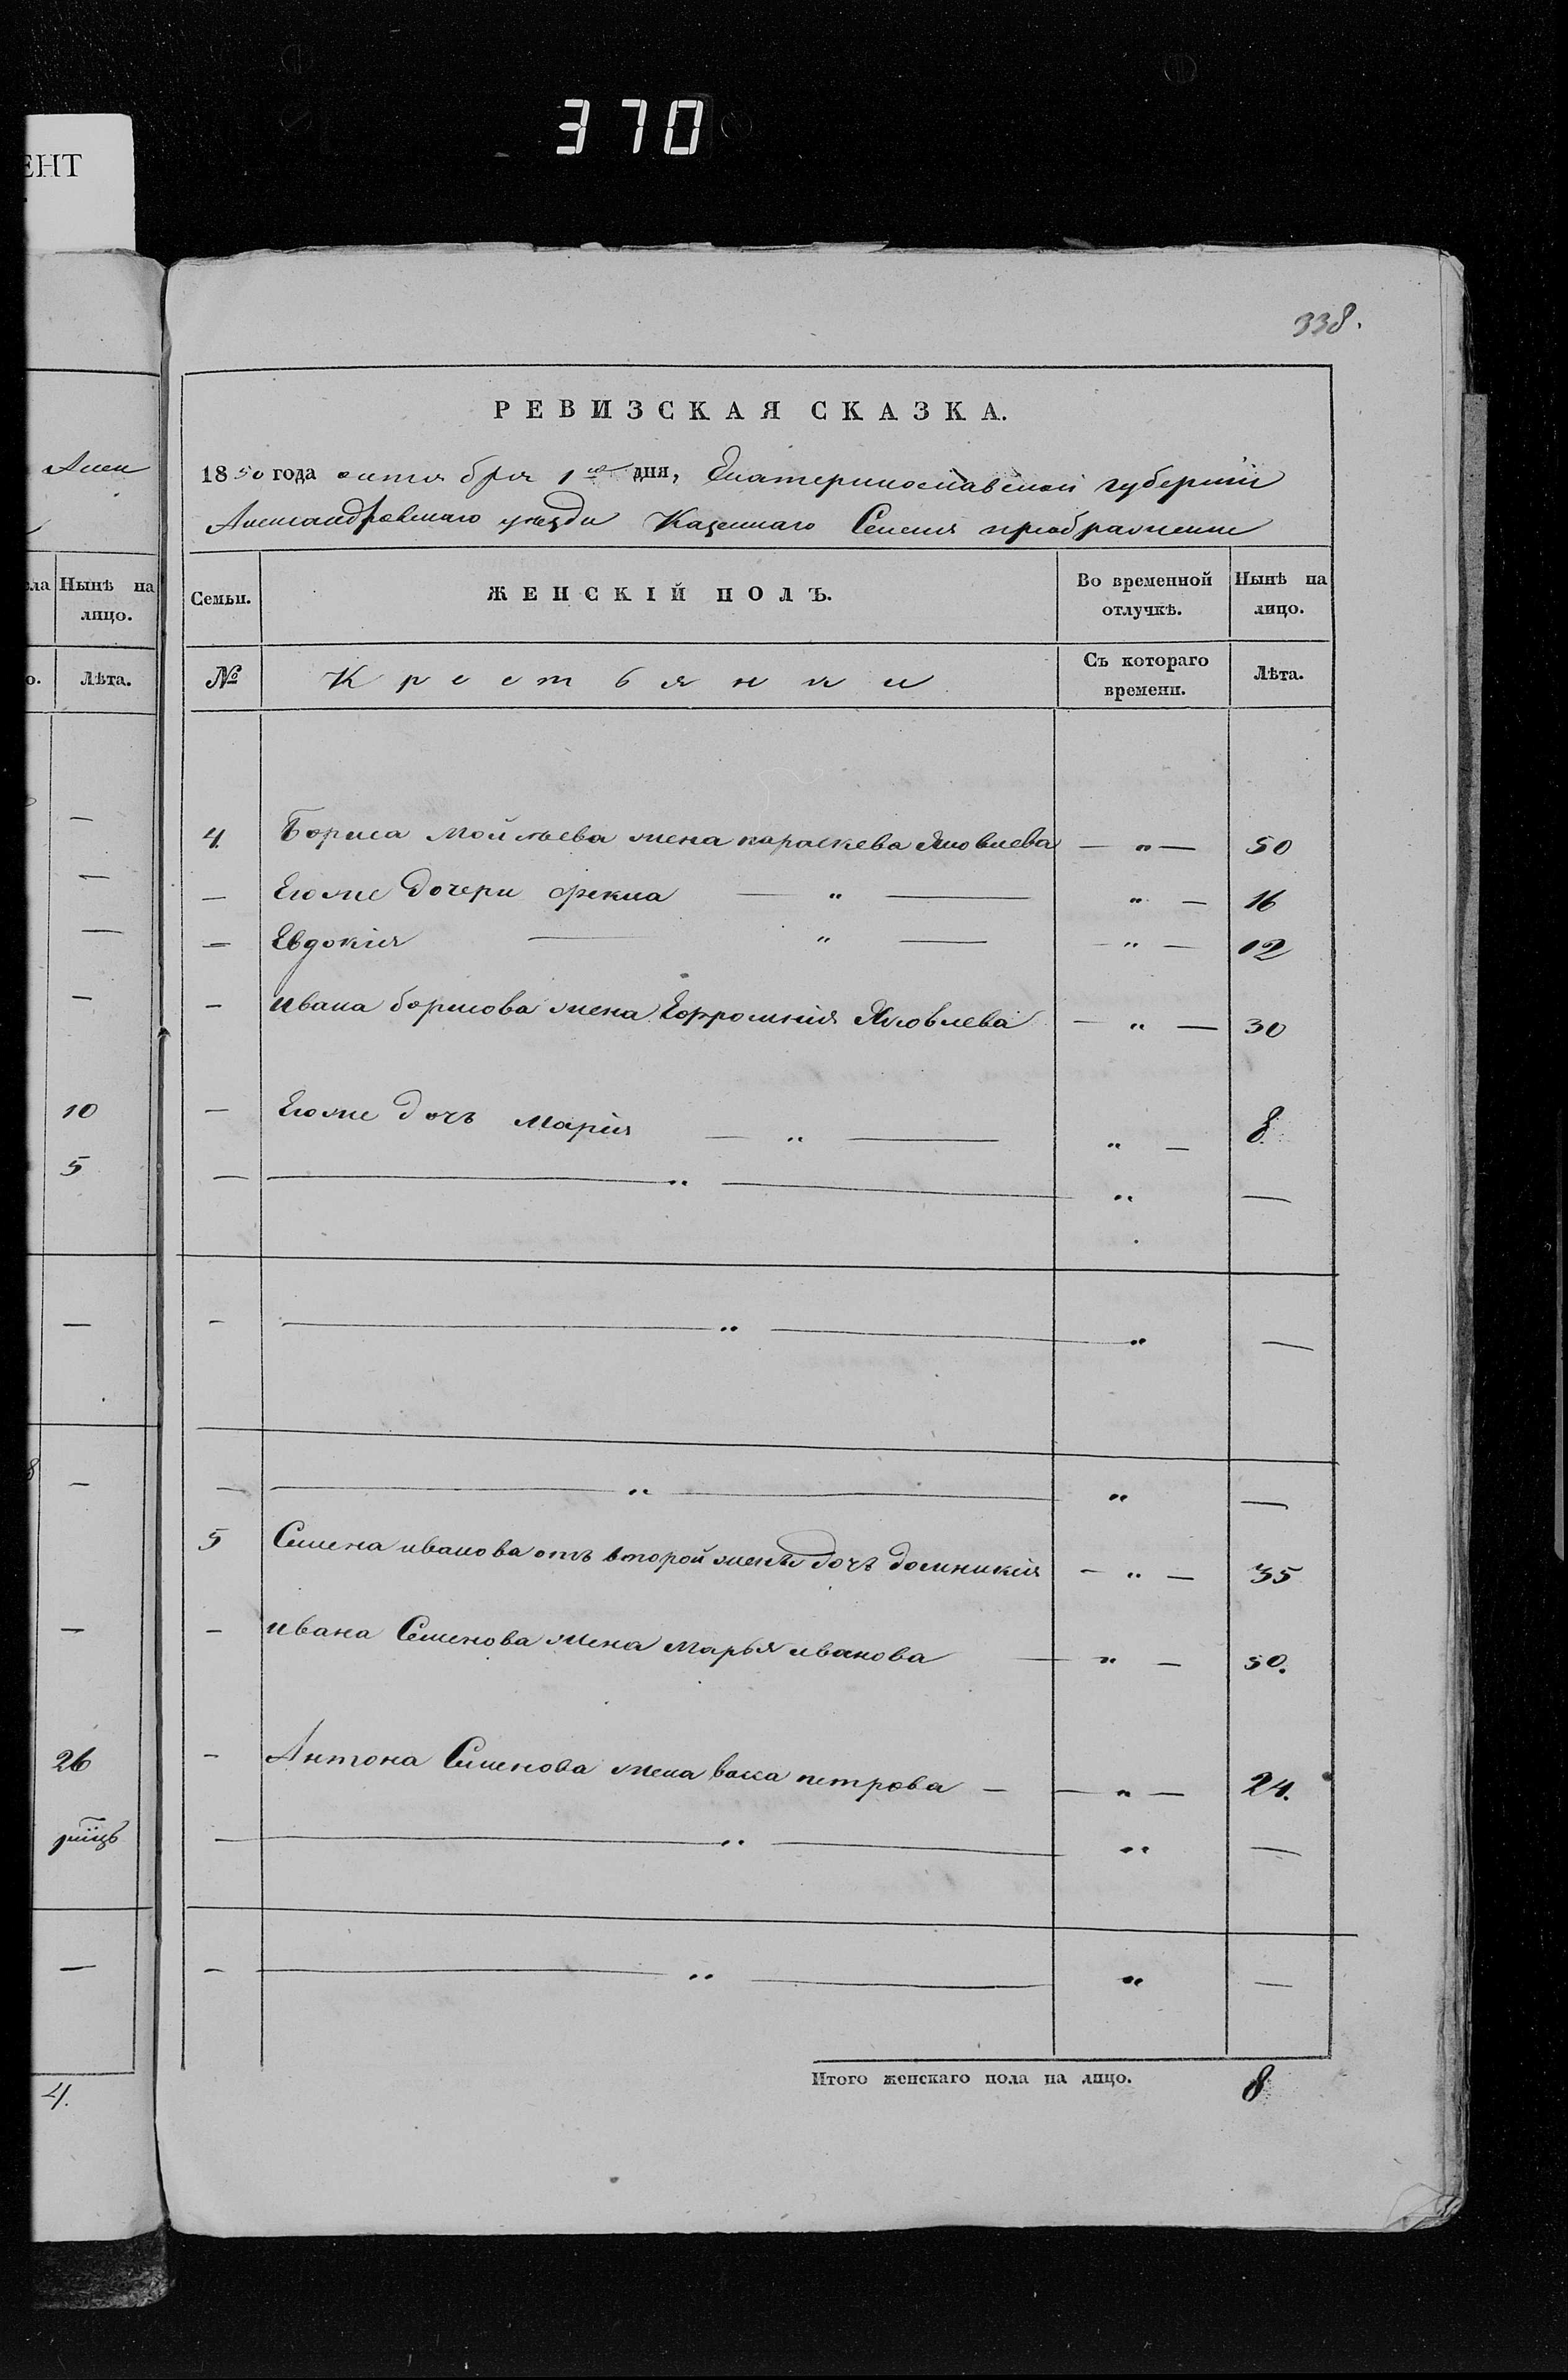 370
ЕНТ
338.
Алек
РЕВИЗСКАЯ СКАЗКА.
1850 года октября 1го дня, Екатеринославской губернии
Александровскаго уезда Казеннаго Селения преображенне
Нынѣ на лицо.
Лѣта.
Семьи. ЖЕНСКІЙ ПОЛЪ. Во временной отлучкѣ. Нынѣ на лицо.
№ Крестьянки Съ котораго времени. Лѣта.
4 Бориса Мойсѣева жена параскева Яковлева — „ — 50
— Егоже дочери Фекла — „ — „ — 16
— Евдокия — „ — — „ — 12
— ивана борисова жена Ефросинія Яковлева — „ — 30
10 — Егоже дочь Марія — „ — „ — 8
5 — — „ — „ —
— — „ — „ —
— — „ — „ —
5 Семена иванова отъ второй жены дочь домникия — „ — 35
— ивана Семенова жена Марья иванова — „ — 50.
26 — Антона Семенова жена васса петрова — — „ — 24.
— — „ — „ —
— — „ — „ —
Итого женскаго пола на лицо. 8
4.